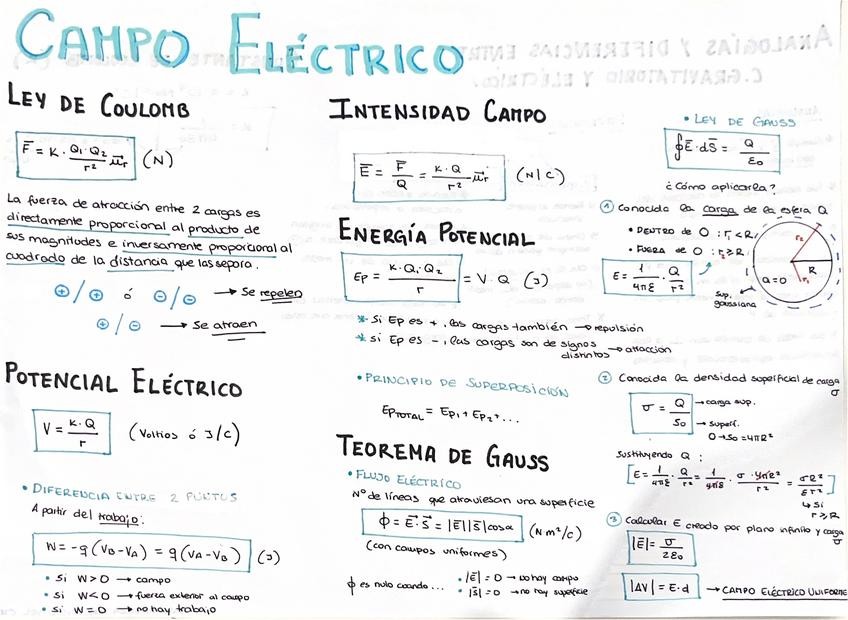 CAMPO ELÉCTRICO
LEY DE COULOMB
F̄ = K · Q₁ · Q₂ / r² · μ⃗r (N)
La fuerza de atracción entre 2 cargas es
directamente proporcional al producto de
sus magnitudes e inversamente proporcional al
cuadrado de la distancia que las separa.
⊕/⊕ ó ⊖/⊖ → Se repelen
⊕/⊖ → Se atraen
POTENCIAL ELÉCTRICO
V = K · Q / r (Voltios ó J/C)
• DIFERENCIA ENTRE 2 PUNTOS
A partir del trabajo:
W = -q (VB - VA) = q (VA - VB) (J)
• Si W > 0 → campo
• Si W < 0 → fuerza exterior al campo
• Si W = 0 → no hay trabajo
INTENSIDAD CAMPO
Ē = F̄ / Q = K · Q / r² · μ⃗r (N/C)
ENERGÍA POTENCIAL
Ep = K · Q₁ · Q₂ / r = V · Q (J)
* Si Ep es +, las cargas también → repulsión
* si Ep es -, las cargas son de signos
distintos → atracción
• PRINCIPIO DE SUPERPOSICIÓN
EpTOTAL = Ep₁ + Ep₂ + ...
TEOREMA DE GAUSS
• FLUJO ELÉCTRICO
Nº de líneas que atraviesan una superficie
ϕ = E⃗ · S⃗ = |E||S| cos α (N m²/C)
(con campos uniformes)
ϕ es nulo cuando...
• |E⃗| = 0 → no hay campo
• |S⃗| = 0 → no hay superficie
• LEY DE GAUSS
∮ E⃗ · dS⃗ = Q / ε₀
¿Cómo aplicarla?
① Conocida la carga de la esfera Q
• DENTRO DE O : r₁ < R
• FUERA DE O : r₂ ≥ R
E = 1 / 4πε · Q / r²
r₂
R
r₁
Q = 0
Sup.
gaussiana
② Conocida la densidad superficial de carga
σ
σ = Q / S₀
→ carga sup.
→ superf.
O → S₀ = 4πR²
sustituyendo Q :
[E = 1 / 4πε · Q / r² = 1 / 4πε · σ · 4πR² / r² = σR² / εr²]
↳ Si
r ≥ R
③ Calcular E creado por plano infinito y carga
σ
|E⃗| = σ / 2ε₀
|ΔV| = E · d → CAMPO ELÉCTRICO UNIFORME
ANALOGÍAS Y DIFERENCIAS ENTRE
C. GRAVITATORIO Y ELÉCTRICO.